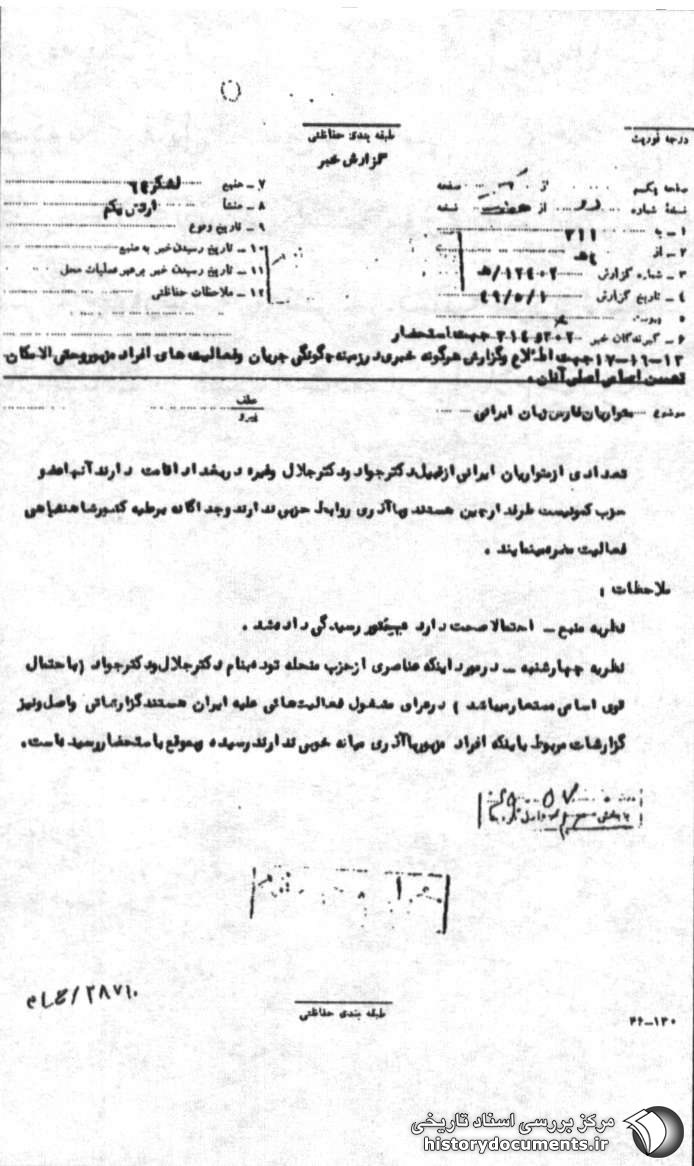 طبقه بندی حفاظتی
درجه فوریت
گزارش خبر
صفحه یکم از صفحه
نسخهٔ شماره از نسخه
۱ – به ۳۱۱
۲ – از ۴ﻫ
۳ – شماره گزارش ۱۲۴۰۲/ﻫ
۴ – تاریخ گزارش ۴۹/۵/۱
۵
۶ – گیرندگان خبر ۳۰۲ و ۳۱۴ جهت استحضار
۷ – منبع لشکر ۶۴
۸ – منشأ ارتش یکم
۹ – تاریخ وقوع
۱۰ – تاریخ رسیدن خبر به منبع
۱۱ – تاریخ رسیدن خبر برهبر عملیات محل
۱۲ – ملاحظات حفاظتی
۱۳–۱۶–۱۷ جهت اطلاع وگزارش هرگونه خبری در زمینه چگونگی جریان وفعالیت های افراد مزبور وحتی الامکان
اسامی اصلی آنان .
موضوع متواریان فارس زبان ایرانی
عطف
پیرو
تعدادی ازمتواریان ایرانی ازقبیل دکترجواد ودکترجلال وغیره دربغداد اقامت دارند آنها عضو
حزب کمونیست طرفدارچین هستند وباآذری روابط حزبی ندارند وجداگانه برعلیه کشورشاهنشاهی
فعالیت مضره مینمایند .
ملاحظات :
نظریه منبع – احتمالا صحت دارد رسیدگی داده شد .
نظریه چهارشنبه – درمورد اینکه عناصری ازحزب منحله توده بنام دکترجلال ودکترجواد (باحتمال
قوی اسامی مستعار میباشد ) درعراق مشغول فعالیت هائی علیه ایران هستند گزارشاتی واصل ونیز
گزارشات مربوط باینکه افراد مزبور باآذری میانه خوبی ندارند رسیده وبموقع باستحضار رسیده است .
۲۸۷۱۰
طبقه بندی حفاظتی
۴۴–۱۳۰
مرکز بررسی اسناد تاریخی
historydocuments.ir